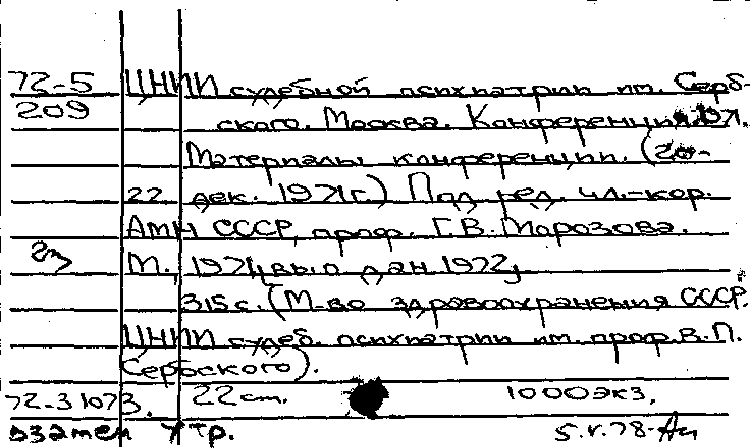 72-5 ЦНИИ судебной психиатрии им. Серб-
209 ского. Москва. Конференция. 1971.
Материалы конференции. (20-
22 дек. 1971г.) Под ред. чл.-кор.
АМН СССР, проф. Г.В. Морозова.
М., 1971,
315 с. (М-во здравоохранения СССР.
ЦНИИ судеб. психиатрии им. проф. В.П.
Сербского).
72-31073. 22 см. 1000 экз.
взамен утр. 5.V.78